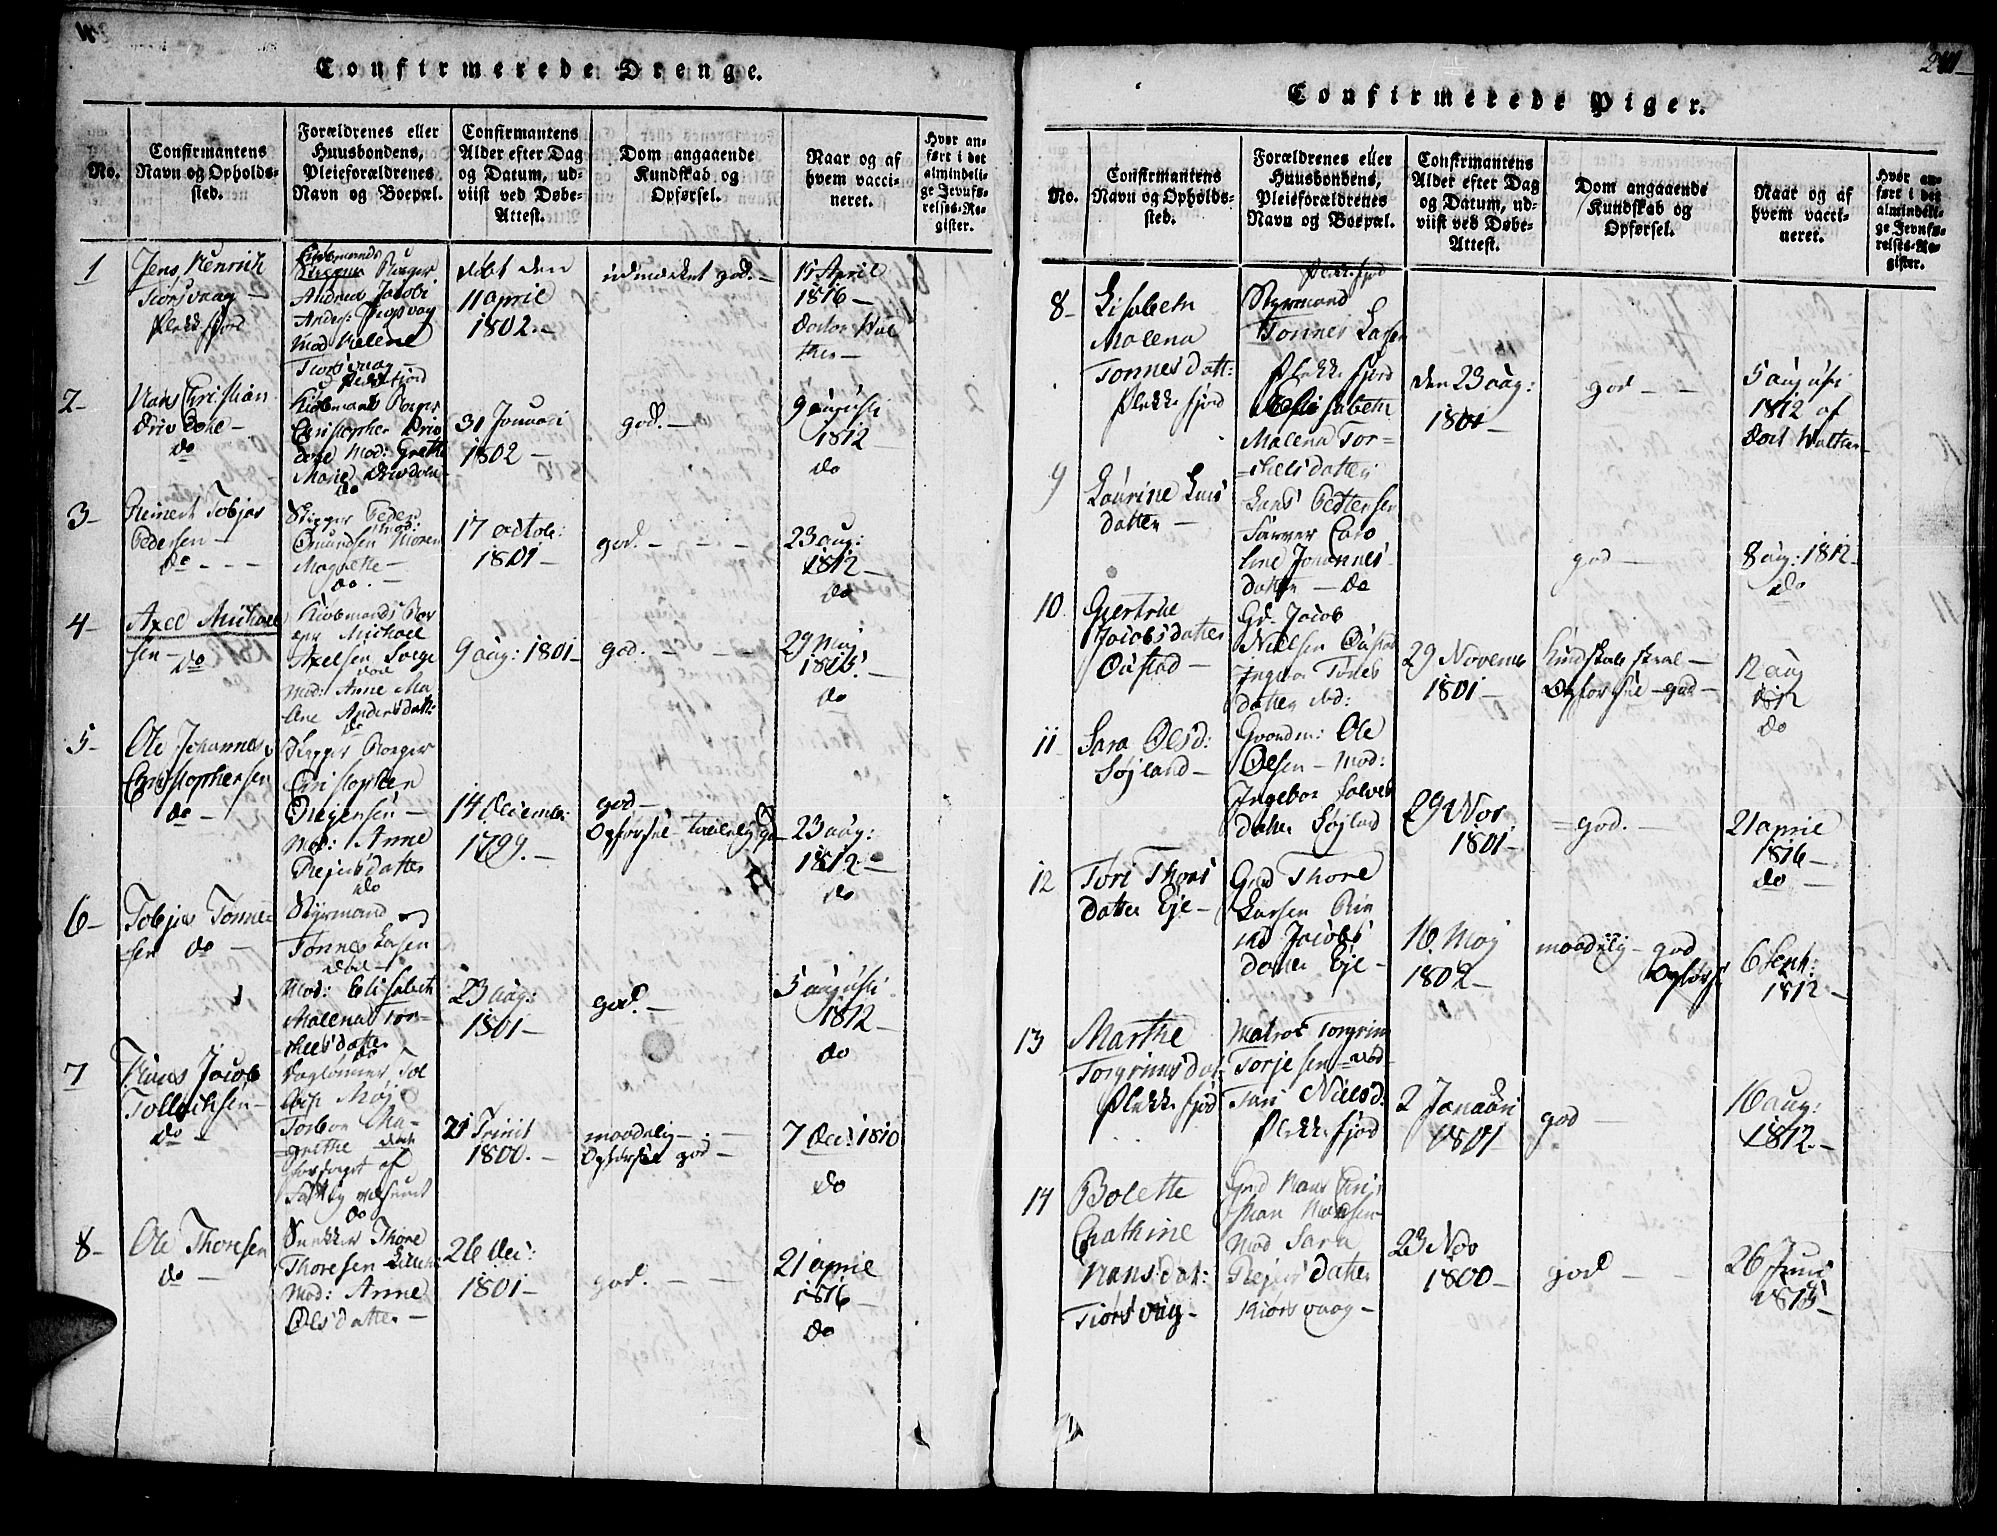 Confirmerede Drenge.
No.
Confirmantens
Navn og Opholds-
sted.
Forældrenes eller
Huusbondens,
Pleieforældrenes
Navn og Boepæl.
Confirmantens
Alder efter Dag
og Datum, ud-
viist ved Døbe-
Attest.
Dom angaaende
Kundskab og
Opførsel.
Naar og af
hvem vacci-
neret.
Hvor an-
ført i det
almindeli-
ge Jevnfø-
relses-Re-
gister.
1
Jens Henrich
Tiorsvaag -
Flekkefjord
Andreas Jacobi
Mod Helene
Tiorsvaag -
Flekkefjord
født den
11 april
1802. -
udmærket god. -
15 April
1816 -
Doctor Wal
ther -
2-
Hans Christian
do
Kiøbmand Borger
Christopher
Mod: Grethe
Marie
do
31 Januari
1802 -
god. -
9 augusti
1812 -
do
3-
Reinert Tobjas
Pedersen -
do - - -
Skipper Peder
Mod:
Omundsen Maren
Magrethe -
do. -
17 octob:
1801 -
god. - - -
23 aug:
1812 -
do
4-
Axel Michael
sen - do
Kiøbmand Bor
ger Michael
Axelsen
Mod: Anne Ma
lene Andersdatt:
do
9 aug: 1801 -
god. - - -
29 Maj
1815. -
do
5-
Ole Johannes
Christophersen
do -
Skipper Borger
Christopher
Rejersen -
Mod: Anne
Rejersdatter
do
14 December
1799. -
god -
Opførsel
23 aug:
1812 -
do
6-
Tobjas Tønne-
sen do -
Styrmand
Tønnes Larsen
Mod: Elisabeth
Malena Tor-
kelsdatter
do
23 aug:
1801 -
god. -
5 augusti
1812 -
do
7
Hans Jacob
Tollaksen -
do -
Daglønner Tol
Torbor Ma-
grethe
forsørget af
do
21 Trinit
1800. -
maadelig - . -
Opførsel god -
7 Dec: 1810
do
8-
Ole Thoresen
do -
Snekker Thore
Thoresen
Mod: Anne
Olsdatter -
26 Dec:
1801 -
god. - -
21 april
1816 -
do
Confirmerede Piger.
No.
Confirmantens
Navn og Opholds-
sted.
Forældrenes eller
Huusbondens,
Pleieforældrenes
Navn og Boepæl.
Confirmantens
Alder efter Dag
og Datum, ud-
viist ved Døbe-
Attest.
Dom angaaende
Kundskab og
Opførsel.
Naar og af
hvem vacci-
neret.
Hvor an-
ført i det
almindeli-
ge Jevnfø-
relses-Re-
gister.
8-
Lisabeth
Malena
Tonnesdatt:
Flekkefjord
Flekkefjord
Styrmand
Tonnes Larsen
Flekkefjord
Elisabeth
Malena Tor-
kelsdatter
den 23 aug:
1801 -
god - -
5 augusti
1812 af
Doct Walther
9
Laurine Lars
datter -
Lars Pettersen
Farver Caro
line Johannes
datter - do
god -
8 aug: 1812 -
do
10.
Gjertrue
Jacobsdatter
Oustad -
Gd. Jacob
Nielsen Oustad
Ingebor Tønes
datter Mod:
29 Novemb
1801 -
Kundskab
Opførsel - god -
12 aug
1812
do
11
Sara Olsd:
Søjland -
Gaardm: Ole
Olsen - Mod:
Ingebor Salves
datter Søjland
29 Nov.
1801 -
- god. -
21 april
1816 -
do -
12
Tori Thors
datter Eje -
Gmd Thore
Larsen
Jacobs
datter Eje -
16 Maj
1802 -
maadelig - god
Opførsel
6 Sept:
1812 -
13
Marthe
Torgrimsdat
Flekkefjord
Matros Torgrim
Torjesen - Mod
Tari Nielsd.
Flekkefjord
2 Januari
1801
god -
16 aug:
1812. -
14
Bolette
Chathine
Hansdat:
Tiørsvaag -
Gmd Hans Chris
tian Hansen
Mod Sara
Rejersdatter
Kiørsvaag -
23 Nov
1800 -
god - -
26 Juni
1815 -